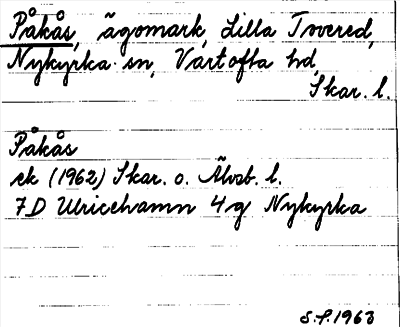 Påkås, ägomark, Lilla Tovered,
Nykyrka sn, Vartofta hd,
Skar. l.
Påkås
ek (1962) Skar. o. Älvsb. l.
7D Ulricehamn 4g Nykyrka
S.F. 1963